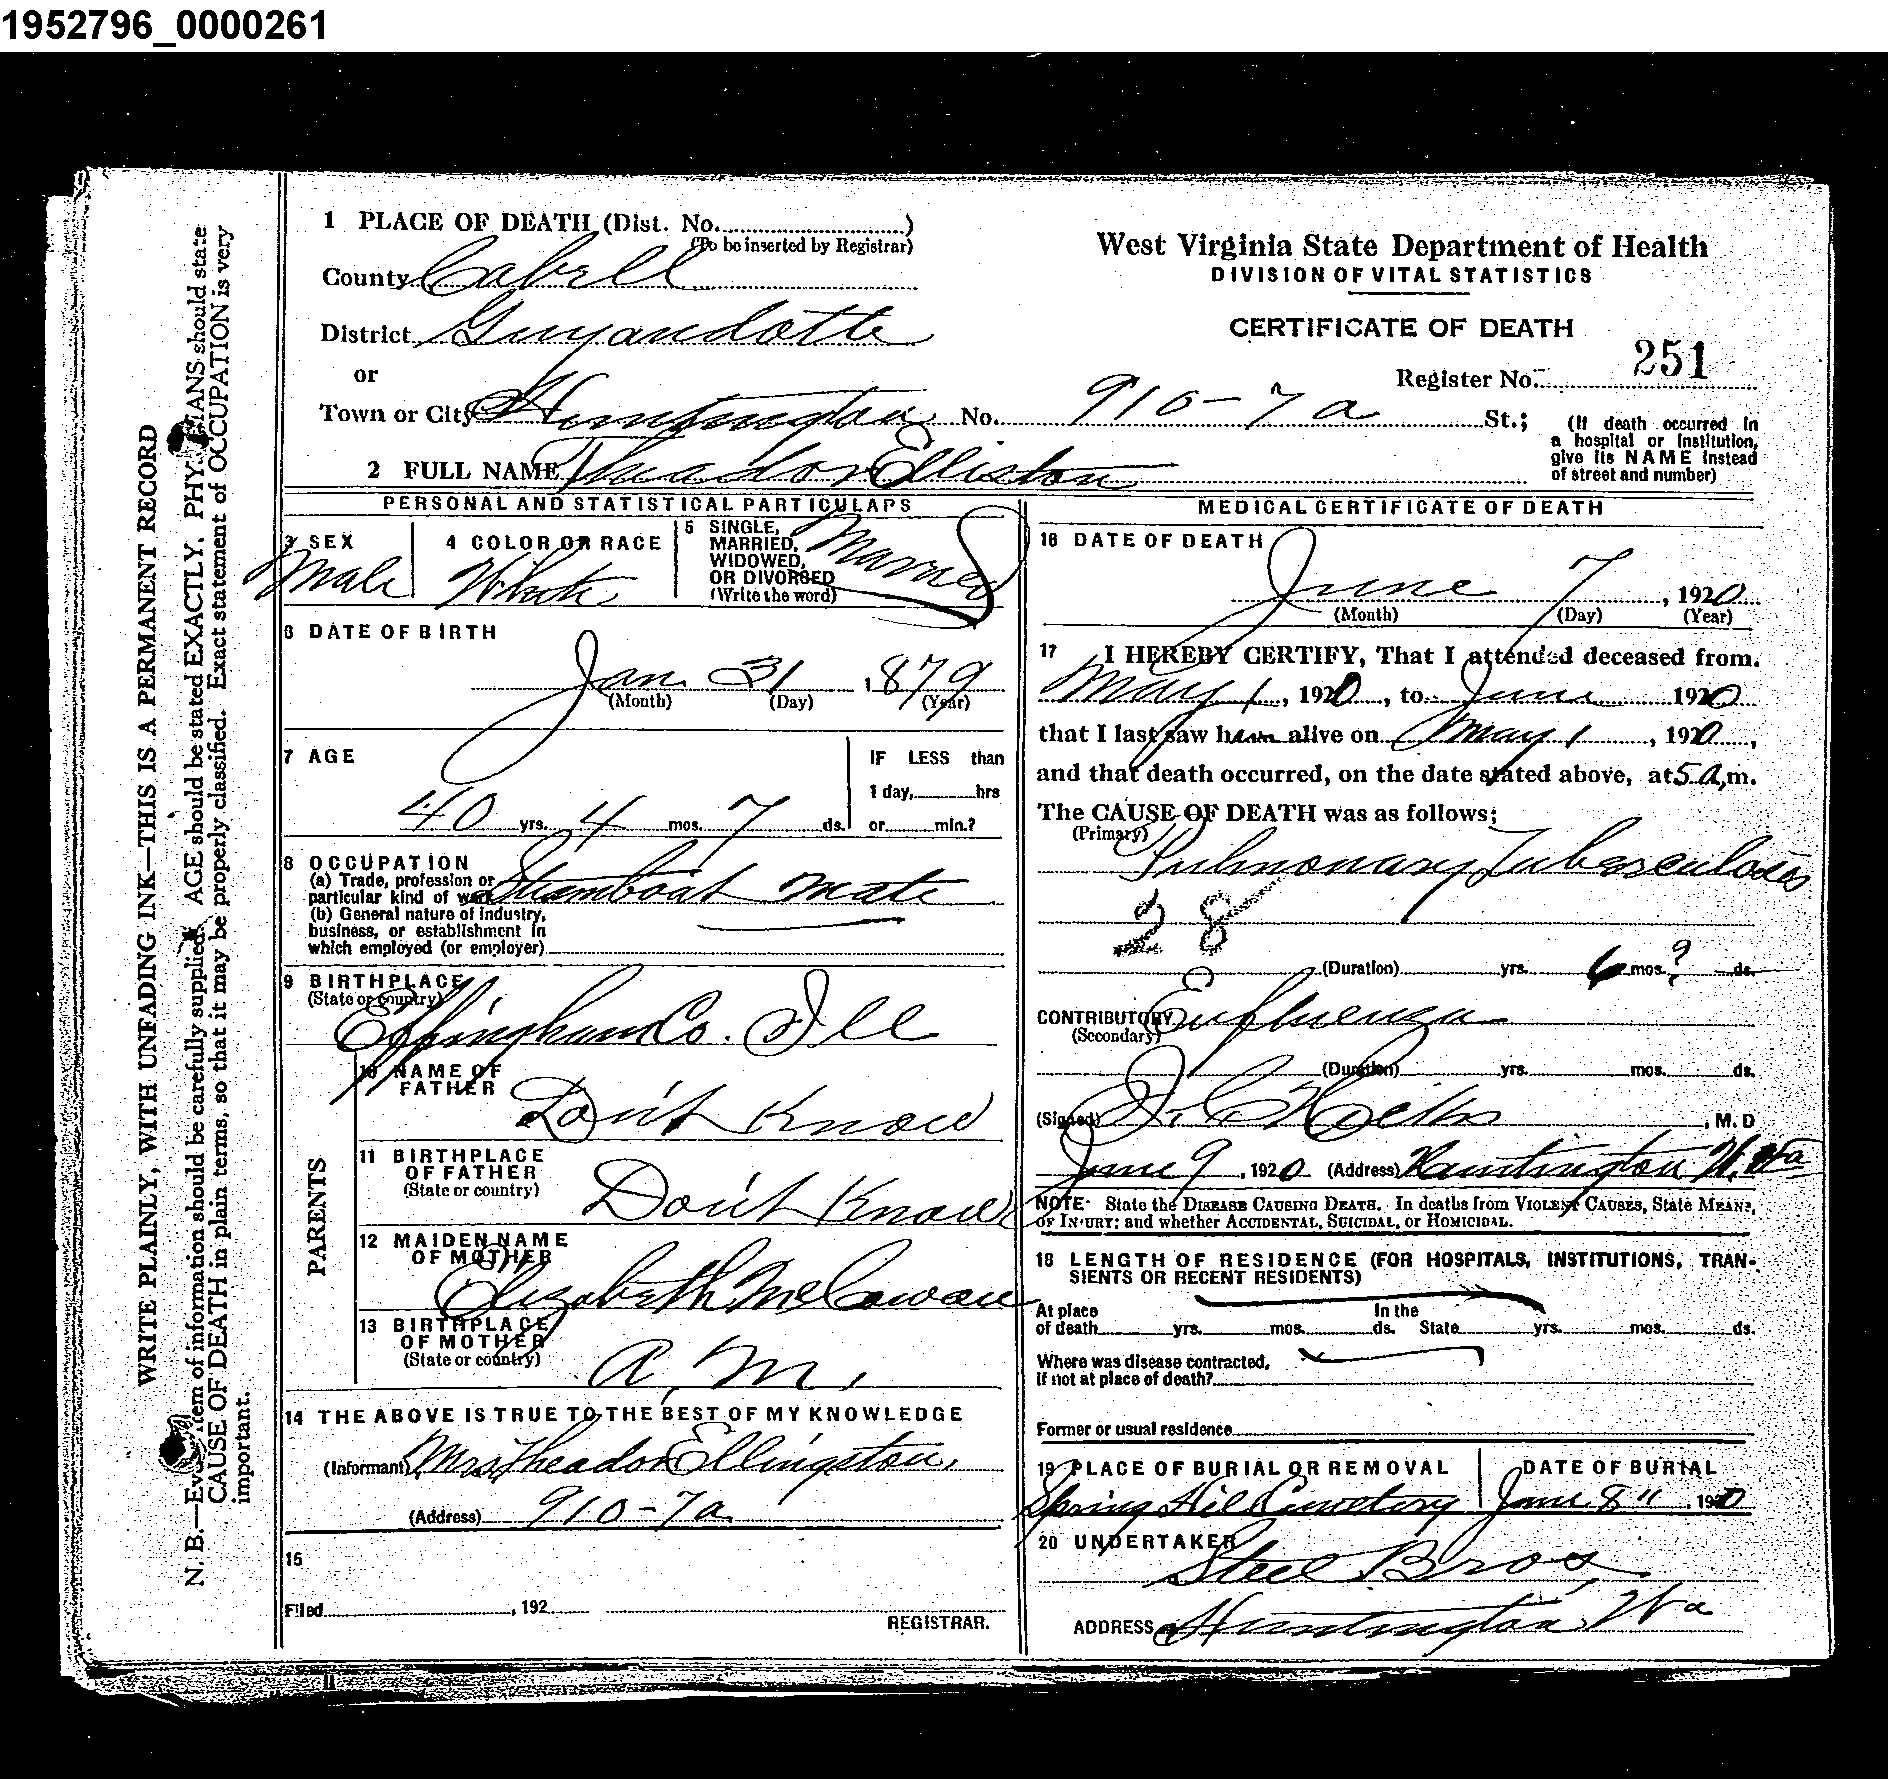 1952796_0000261
1 PLACE OF DEATH (Dist. No. )
(To be inserted by Registrar)
County Cabell
District Guyandotte
or
Town or City Huntington No. 910-7a St.;
(If death occurred in a hospital or institution, give its NAME instead of street and number)
2 FULL NAME Theador Elliston
West Virginia State Department of Health
DIVISION OF VITAL STATISTICS
CERTIFICATE OF DEATH
Register No. 251
PERSONAL AND STATISTICAL PARTICULARS
3 SEX
Male
4 COLOR OR RACE
White
5 SINGLE,
MARRIED,
WIDOWED,
OR DIVORCED
(Write the word)
Married
6 DATE OF BIRTH
Jan 31 1879
(Month) (Day) (Year)
7 AGE
40 yrs. 4 mos. 7 ds.
IF LESS than
1 day, hrs
or min.?
8 OCCUPATION
(a) Trade, profession or
particular kind of work Steamboat mate
(b) General nature of Industry,
business, or establishment in
which employed (or employer)
9 BIRTHPLACE
(State or country)
Effingham Co. Ill
PARENTS
10 NAME OF
FATHER
Don't Know
11 BIRTHPLACE
OF FATHER
(State or country)
Don't Know
12 MAIDEN NAME
OF MOTHER
Elizabeth McCowan
13 BIRTHPLACE
OF MOTHER
(State or country)
14 THE ABOVE IS TRUE TO THE BEST OF MY KNOWLEDGE
(Informant) Mrs Theador Ellingston,
(Address) 910-7a
15
Filed , 192
REGISTRAR.
MEDICAL CERTIFICATE OF DEATH
16 DATE OF DEATH
June 7, 1920
(Month) (Day) (Year)
17 I HEREBY CERTIFY, That I attended deceased from.
May 1, 1920, to June 1920
that I last saw him alive on May 1, 1920,
and that death occurred, on the date stated above, at 5 a, m.
The CAUSE OF DEATH was as follows;
(Primary)
Pulmonary Tuberculosis
28
(Duration) yrs. 6 mos? ds.
CONTRIBUTORY
(Secondary)
Enfluenza
(Duration) yrs. mos. ds.
(Signed) , M. D
June 9, 1920 (Address) Huntington W. Va
NOTE- State the DISEASE CAUSING DEATH. In deaths from VIOLENT CAUSES, State MEANS,
OF INJURY; and whether ACCIDENTAL, SUICIDAL, or HOMICIDAL.
18 LENGTH OF RESIDENCE (FOR HOSPITALS, INSTITUTIONS, TRAN-
SIENTS OR RECENT RESIDENTS)
At place In the
of death yrs. mos. ds. State yrs. mos. ds.
Where was disease contracted,
if not at place of death?
Former or usual residence
19 PLACE OF BURIAL OR REMOVAL
Spring Hill Cemetery
DATE OF BURIAL
June 8" 1920
20 UNDERTAKER
Steel Bros
ADDRESS Huntington, W Va
WRITE PLAINLY, WITH UNFADING INK—THIS IS A PERMANENT RECORD
N. B.—Every item of information should be carefully supplied. AGE should be stated EXACTLY. PHYSICIANS should state
CAUSE OF DEATH in plain terms, so that it may be properly classified. Exact statement of OCCUPATION is very
important.